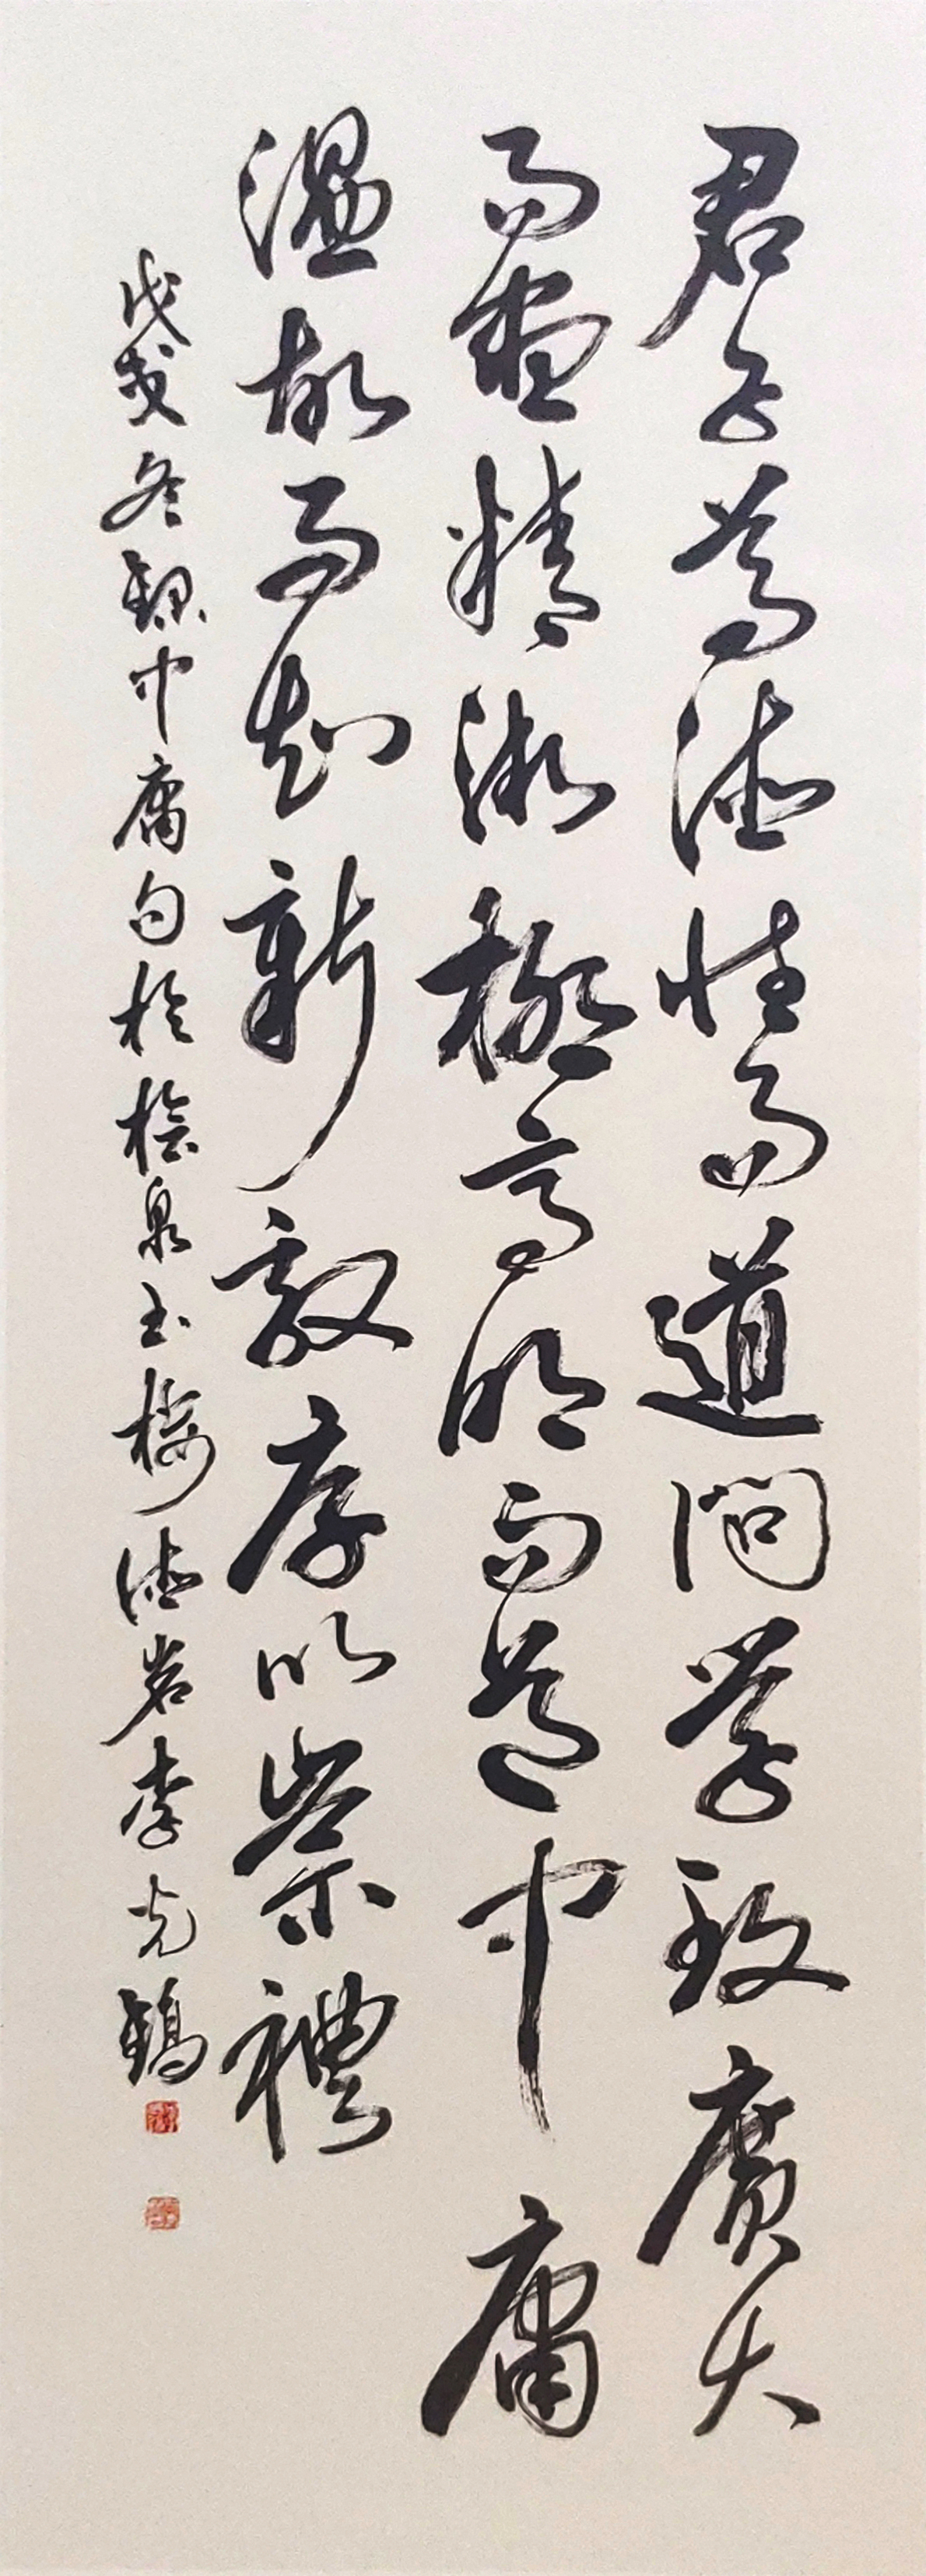 君子尊德性而道問學致廣大
而盡精微極高明而道中庸
溫故而知新敦厚以崇禮
戊戌冬錄中庸句於桧泉玉楼德岩李光鎬